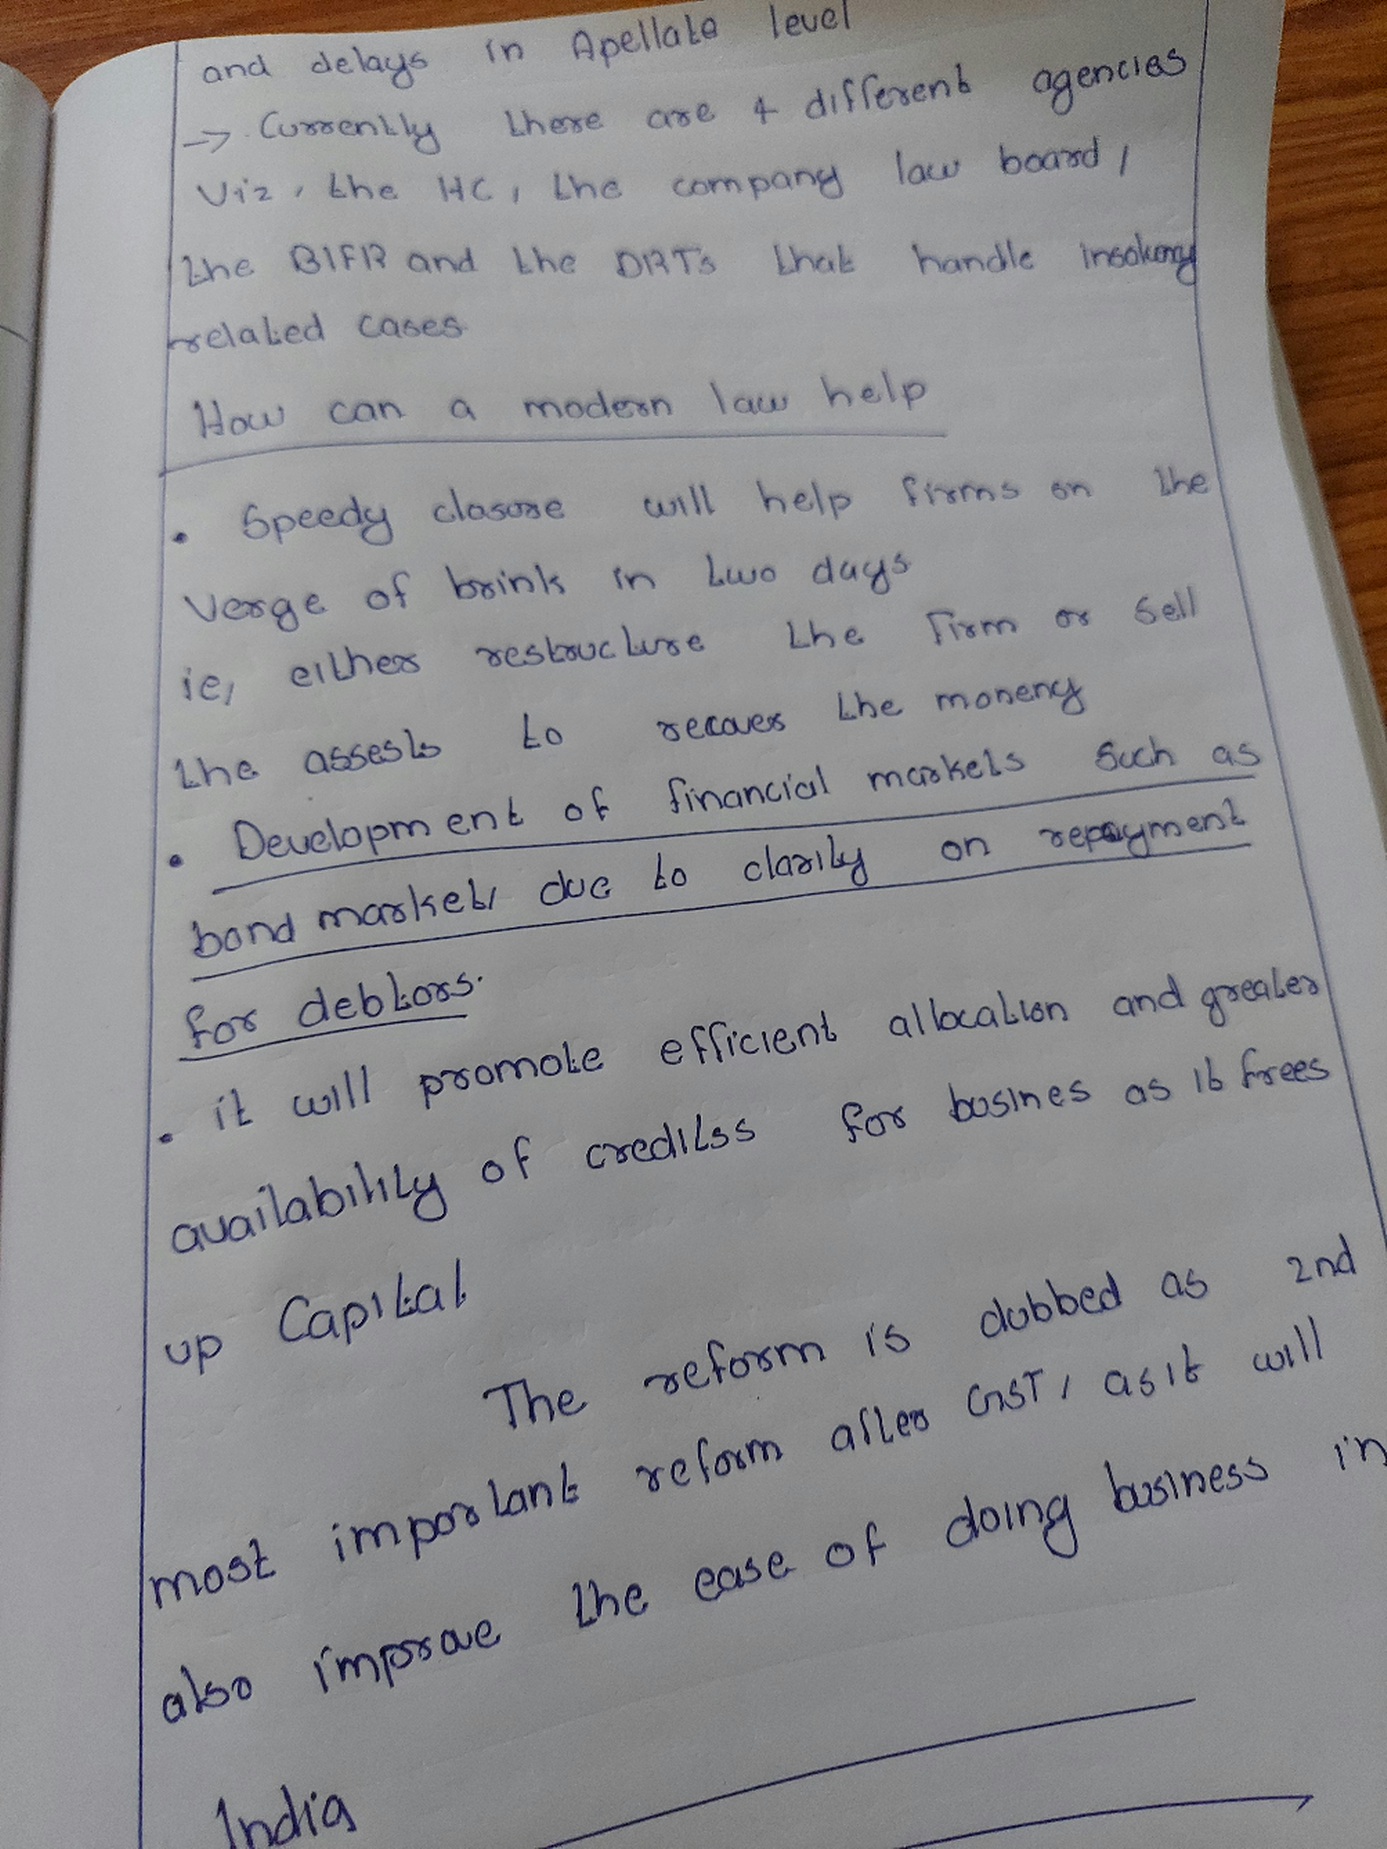 and delays in Apellate level
→ Currently there are 4 different agencies
Viz, the HC, the company law board,
the BIFR and the DRTs that handle insolvency
related cases
How can a modern law help
• Speedy closure will help firms on the
verge of brink in two days
ie, either restructure the firm or sell
the assests to recover the moneny
• Development of financial markets such as
bond market, due to clarity on repayment
for debtors.
• it will promote efficient allocation and greater
availability of creditss for busines as it frees
up Capital
The reform is dubbed as 2nd
most important reform after GST, as it will
also improve the ease of doing business in
India